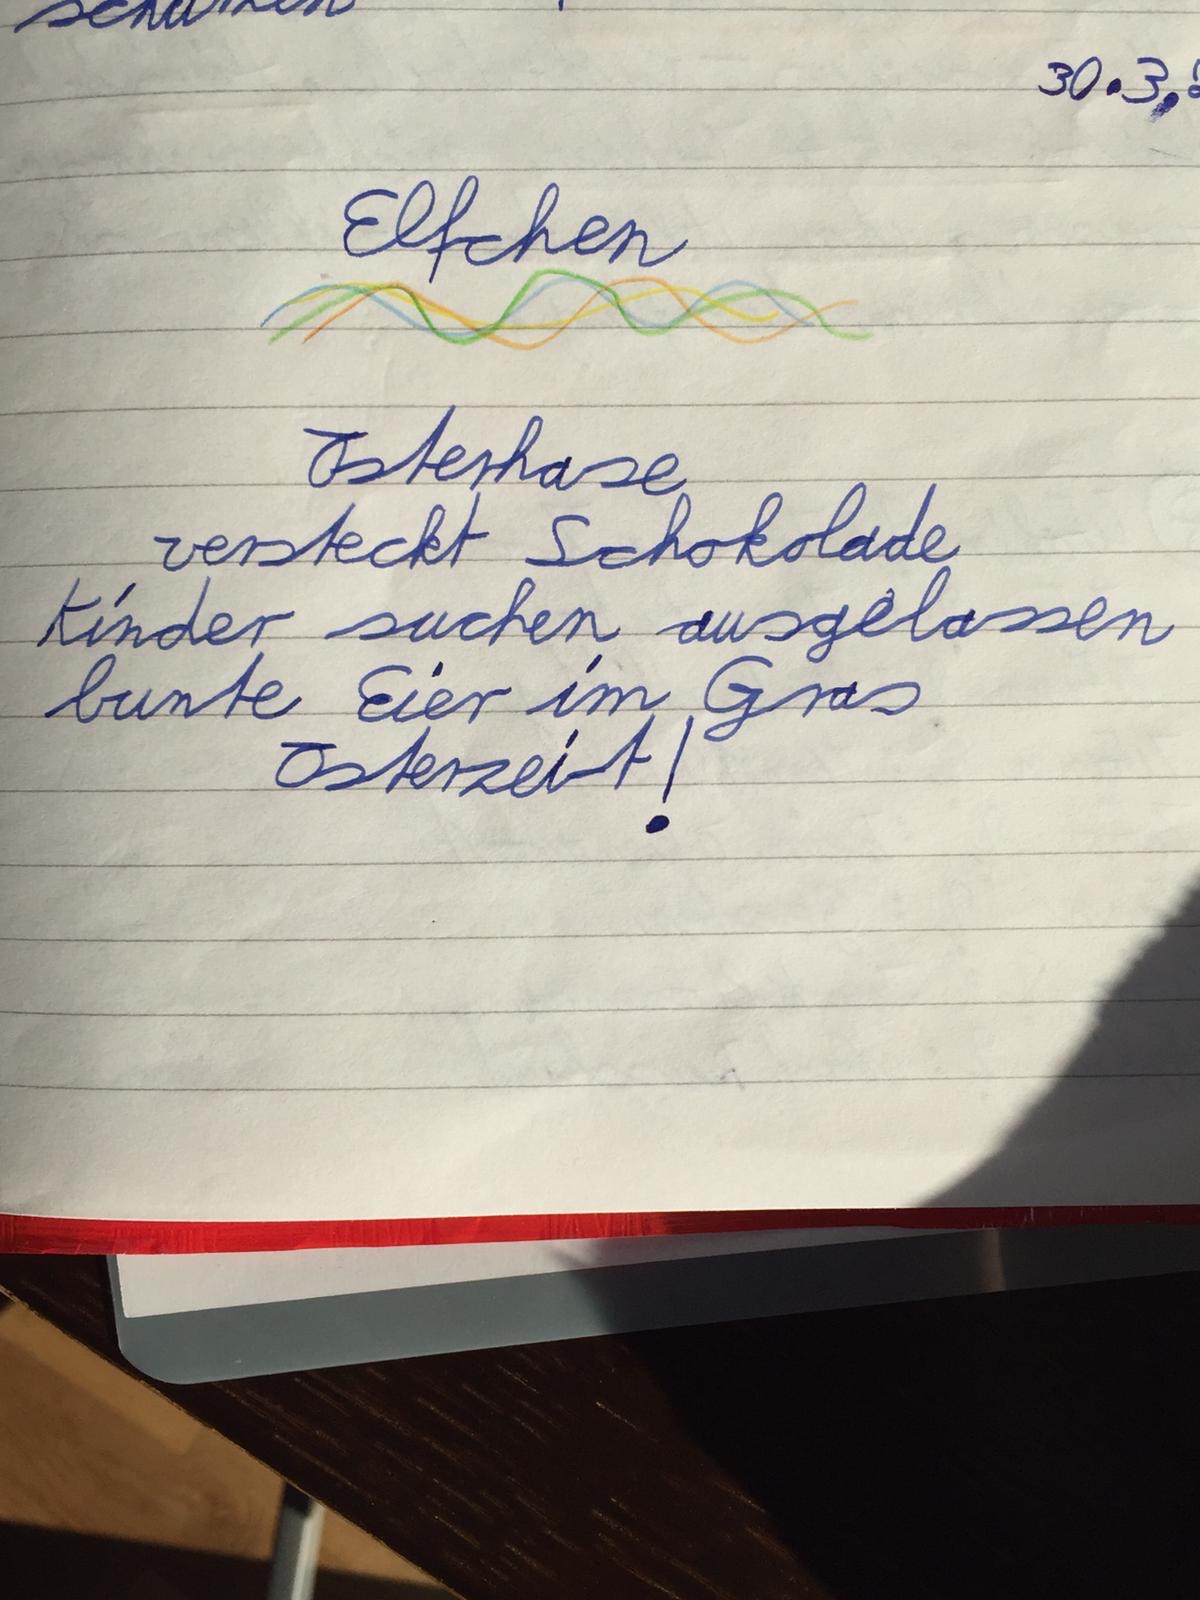 30.3.
Elfchen
Osterhase
versteckt Schokolade
Kinder suchen ausgelassen
bunte Eier im Gras
Osterzeit!